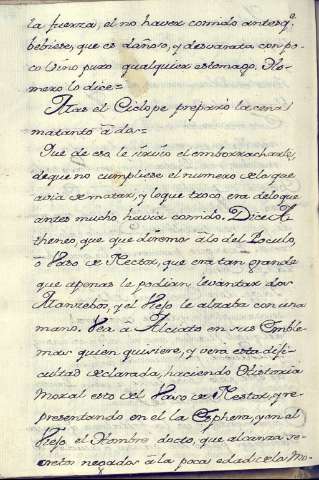 la fuerza, el no haver comido antes q.e
bebiese, que es dañoso, y desvarata con po-
co Vino puro qualquier estomago. Ho-
mero lo dice=
Mas el Ciclope preparò la cena
matando à dos=
Que de eso le sirvio el emborracharle,
de que no cumpliese el numero de los que
avia de matar, y lo que trocó era de lo que
antes mucho havia comido. Dice A-
theneo, que que diremos à lo del Poculo,
ò Vaso de Nestor, que era tan grande
que apenas le podian levantar dos
Manzebos, y el Viejo le alzaba con una
mano. Vea à Alciato en sus Emble-
mas quien quisiere, y verà esta difi-
cultad declarada, haciendo Historia
Moral esto del Vaso de Nestor, y re-
presentando en el la Esphera, y en el
Viejo el Hombre docto, que alcanza se-
cretos negados à la poca edad de los Mo-